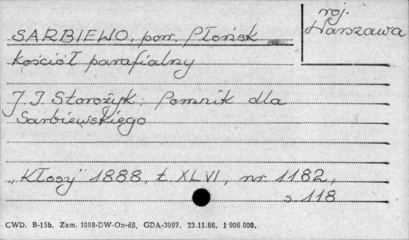 woj.
Warszawa
SARBIEWO, pow. Płońsk
Kościół parafialny
J. I. Storożyk: Pomnik dla
Sarbiewskiego
„Kłosy" 1888, t. XLVI, nr. 1182,
s. 118
CWD. B-15b. Zam. 1008-DW-On-65. GDA-3007. 23.11.66. 1 906 000.